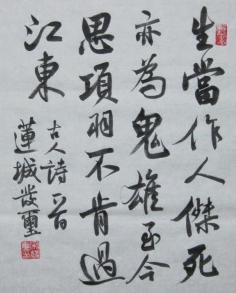 生當作人傑死
亦為鬼雄至今
思項羽不肯過
江東
古人詩首
蓮城